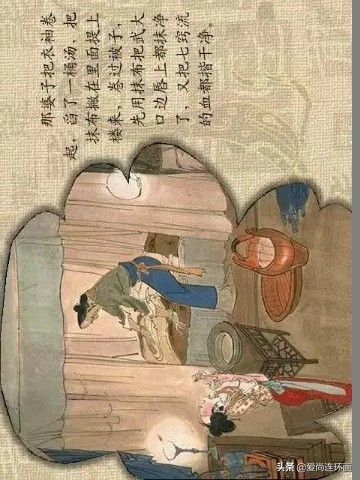 那婆子把衣袖卷
起，舀了一桶汤，把
抹布撇在里面提上
楼来，卷过被子，
先用抹布把武大
口边唇上都抹净
了，又把七窍流
的血都揩干净。
头条 @爱尚连环画